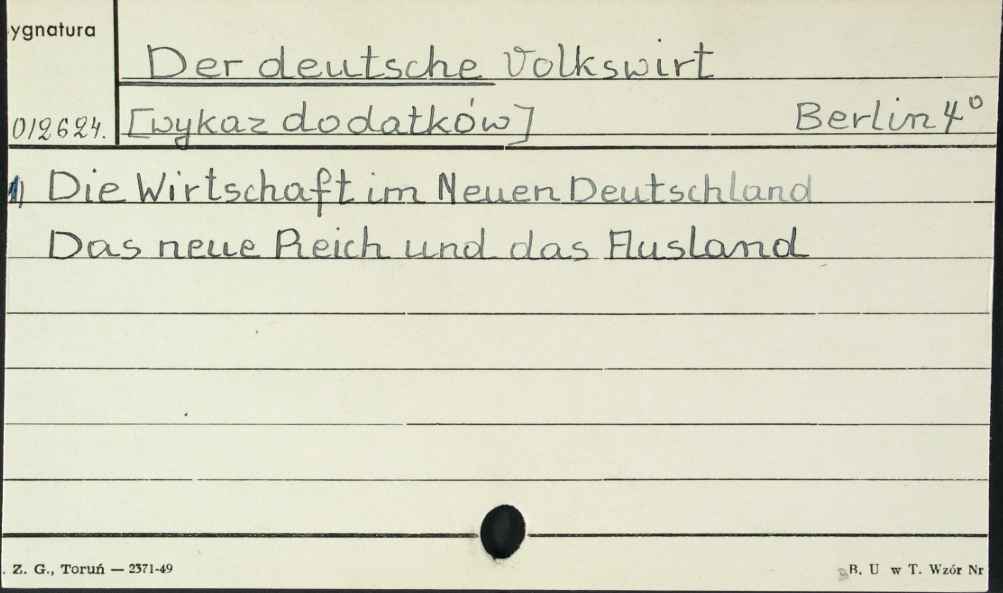 ygnatura
Der deutsche Volkswirt
012624. [wykaz dodatków] Berlin 4°
1) Die Wirtschaft im Neuen Deutschland
Das neue Reich und das Ausland
. Z. G., Toruń — 2371-49
B. U w T. Wzór Nr